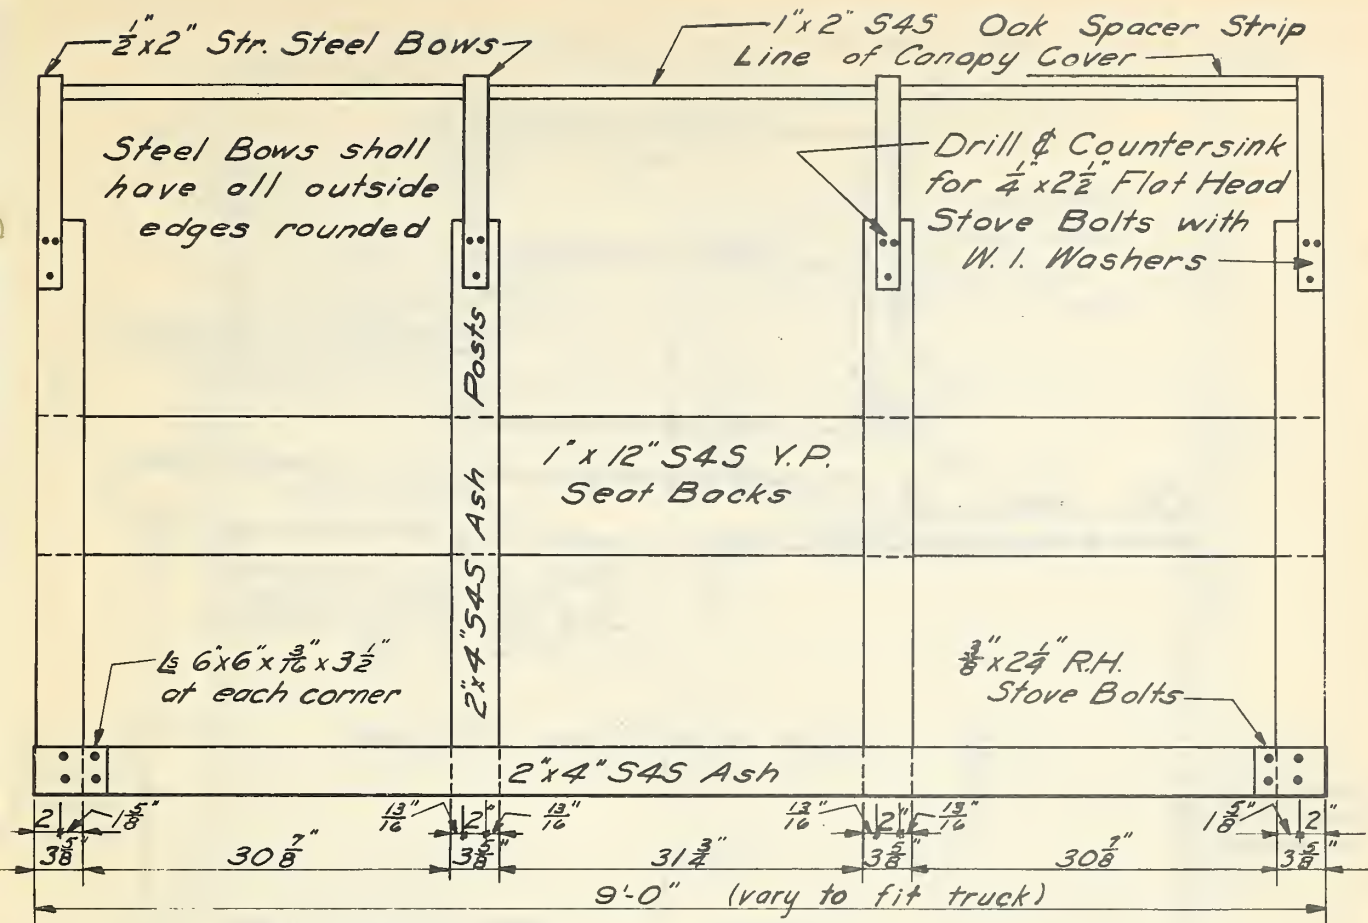 ½"x2" Str. Steel Bows
1"x2" S4S Oak Spacer Strip
Line of Canopy Cover
Steel Bows shall
have all outside
edges rounded
Drill & Countersink
for ¼"x2½" Flat Head
Stove Bolts with
W. I. Washers
2"x4" S4S Ash Posts
1"x12" S4S Y.P.
Seat Backs
Ls 6"x6"x3/16"x3½"
at each corner
⅜"x2¼" R.H.
Stove Bolts
2"x4" S4S Ash
2 1⅝" 13/16" 2" 13/16" 13/16" 2 13/16" 1⅝" 2"
3⅝" 30⅞" 3⅝" 31¾" 3⅝" 30⅞" 3⅝"
9'-0" (vary to fit truck)